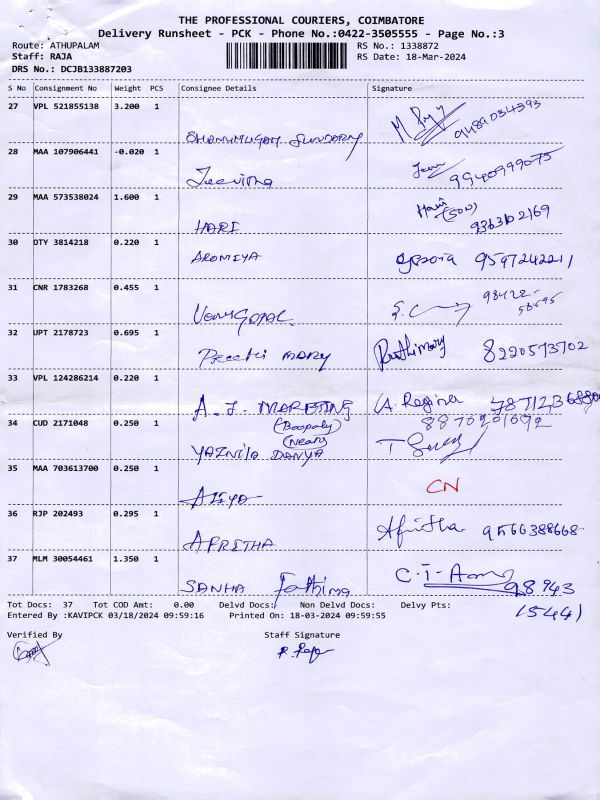 THE PROFESSIONAL COURIERS, COIMBATORE
Delivery Runsheet - PCK - Phone No.:0422-3505555 - Page No.:3
Route: ATHUPALAM RS No.: 1338872
Staff: RAJA RS Date: 18-Mar-2024
DRS No.: DCJB133887203
S No Consignment No Weight PCS Consignee Details Signature
27 VPL 521855138 3.200 1
SHANUMUGAM SUNDARAM 9489034393
28 MAA 107906441 -0.020 1
Jeevitha 9940999075
29 MAA 573538024 1.600 1 Hari (SON)
HARI 9363102169
30 DTY 3814218 0.220 1
AROMIYA 9597242211
31 CNR 1783268 0.455 1 98422-
VENUGOPAL 58595
32 UPT 2178723 0.695 1
Preethi MARY 8220573702
33 VPL 124286214 0.220 1
A. J. MARKETING A. Regina
34 CUD 2171048 0.250 1 8870201092
YAZNila DANYA
35 MAA 703613700 0.250 1 CN
ALIYA
36 RJP 202493 0.295 1
AFRITHA Afritha 9566388668
37 MLM 30054461 1.350 1
SANHA Fathima 98943
Tot Docs: 37 Tot COD Amt: 0.00 Delvd Docs: Non Delvd Docs: Delvy Pts: 15441
Entered By :KAVIPCK 03/18/2024 09:59:16 Printed On: 18-03-2024 09:59:55
Verified By Staff Signature